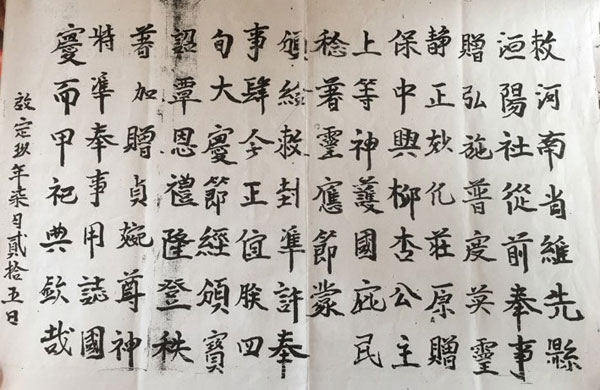 敕河南省維先縣
洹陽社從前奉事
贈弘施普度英靈
静正妙化莊原贈
保中興柳杏公主
上等神護國庇民
稔著靈應節蒙
頒給敕封準許奉
事肆今正值朕四
旬大慶節經頒寶
詔覃恩禮隆登秩
著加贈貞婉尊神
特準奉事用誌國
慶而甲祀典欽哉
啟定玖年柒月貳拾五日